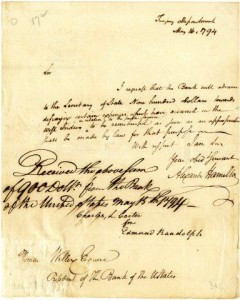 Treasury Department
May 16. 1794
Sir
I request that the Bank will advance
to the Secretary of State Nine hundred dollars towards
defraying certain expences which have occurred in the
West Indies to be reimbursed as soon as an appropriation
shall be made by law for that purpose
With respect I am Sir
Your Obed Servant
Alexander Hamilton
Received the above sum
of 900 Dolls. from the Bank
of the United States May 1794
Charles L Carter
for
Edmund Randolph
Thomas Willing Esquire
President of the Bank of the UStates